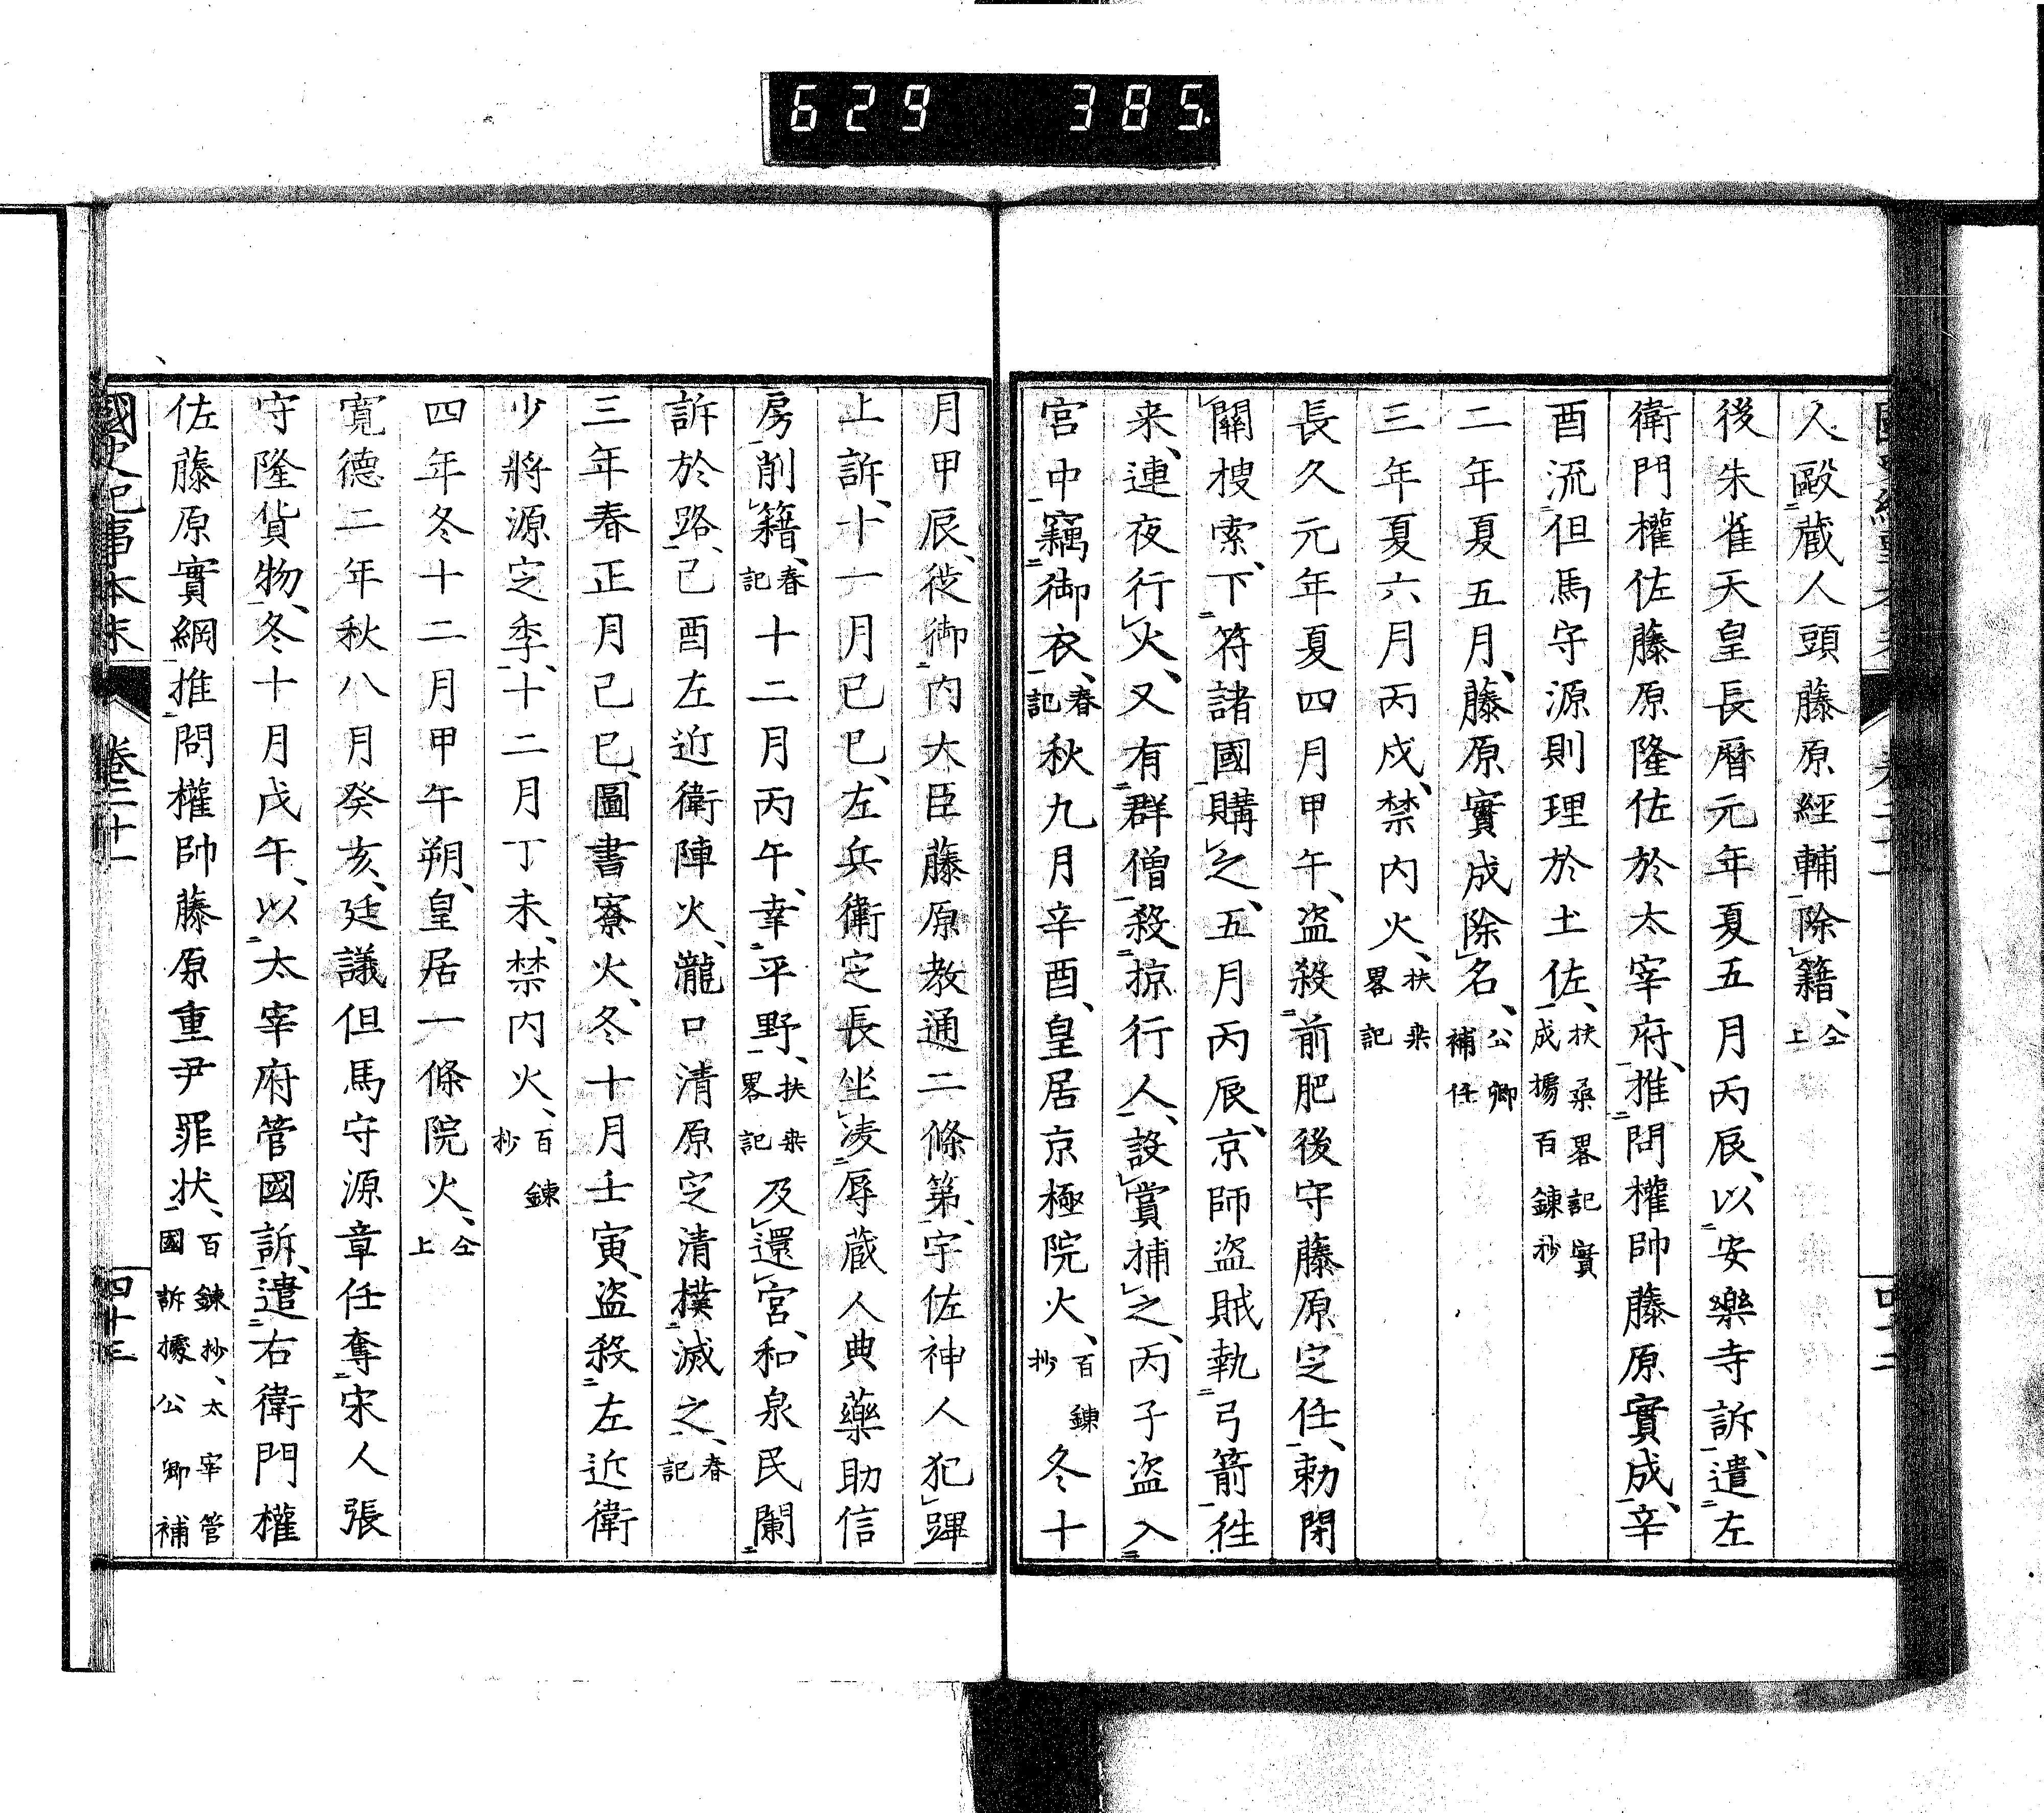 629 385
人毆藏人頭藤原經輔除籍、仝上
後朱雀天皇長曆元年夏五月丙辰、以安樂寺訴、遣左
衛門權佐藤原隆佐於太宰府、推問權帥藤原實成、辛
酉流但馬守源則理於土佐、扶桑畧記實成據百鍊抄
二年夏五月、藤原實成除名、公卿補任
三年夏六月丙戌、禁內火、扶桒畧記
長久元年夏四月甲午、盜殺前肥後守藤原定任、勅閉
關搜索、下符諸國購之、五月丙辰、京師盜賊執弓箭徃
来、連夜行火、又有群僧殺掠行人、設賞捕之、丙子盜入
宮中竊御衣、春記秋九月辛酉、皇居京極院火、百鍊抄冬十
月甲辰、徙御內大臣藤原教通二條第、宇佐神人犯蹕
上訴、十一月已巳、左兵衛定長坐凌辱藏人典藥助信
房削籍、春記十二月丙午、幸平野、扶桒畧記及還宮、和泉民闌
訴於路、己酉左近衛陣火、瀧口清原定清撲滅之、春記
三年春正月己巳、圖書寮火、冬十月壬寅、盜殺左近衛
少將源定季、十二月丁未、禁內火、百鍊抄
四年冬十二月甲午朔、皇居一條院火、仝上
寬德二年秋八月癸亥、廷議但馬守源章任奪宋人張
守隆貨物、冬十月戊午、以太宰府管國訴、遣右衛門權
佐藤原實綱推問權帥藤原重尹罪狀、百鍊抄、太宰管國訴據公卿補
國史紀事本末 卷二十一 四十三